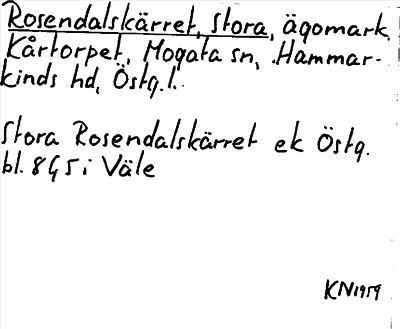 Rosendalskärret, Stora, ägomark,
Kårtorpet, Mogata sn, Hammar-
kinds hd, Östg. l.
Stora Rosendalskärret ek Östg.
bl. 8G5i Väle
KN1959